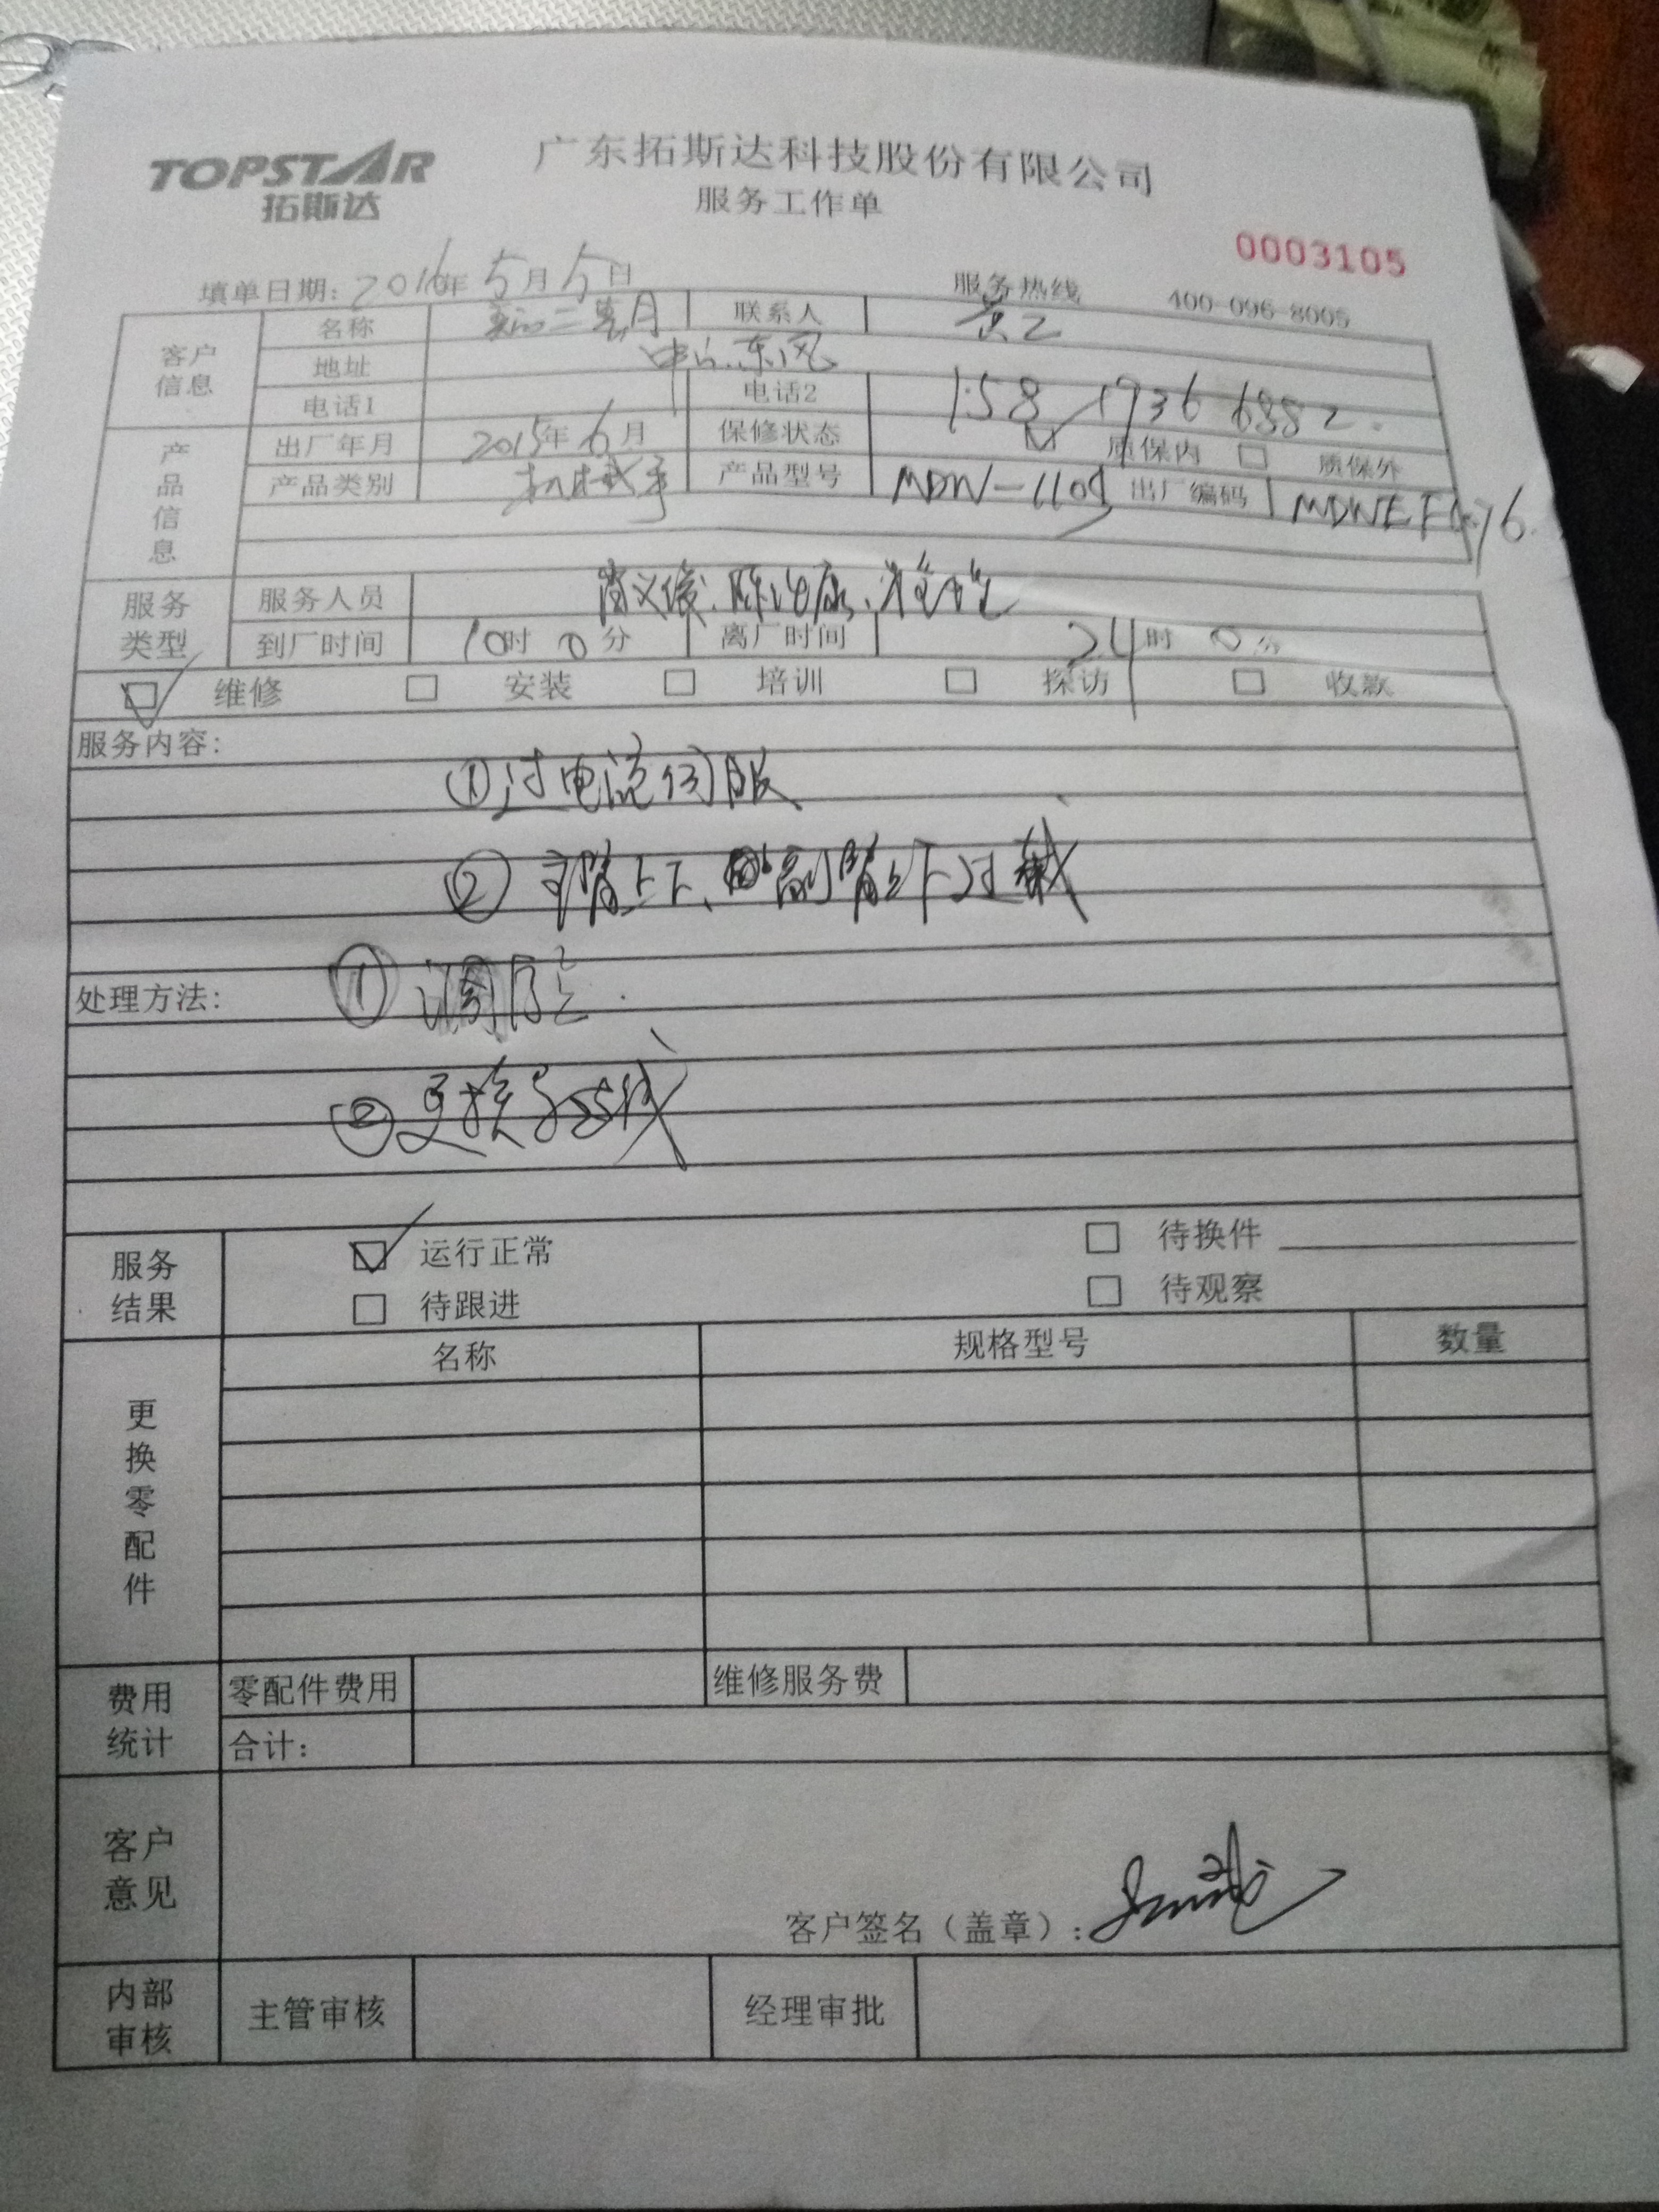 TOPSTAR
拓斯达
广东拓斯达科技股份有限公司
服务工作单
0003105
填单日期: 2016年 5月 5日 服务热线 400-096-8005
客户信息
名称 联系人
地址 中山东风
电话1 电话2 158 1736 6882
产品信息
出厂年月 2015年6月 保修状态 ☑ 质保内 □ 质保外
产品类别 机械手 产品型号 MDW-110S 出厂编码
服务类型
服务人员
到厂时间 10时 0分 离厂时间 24时 0分
☑ 维修 □ 安装 □ 培训 □ 探访 □ 收款
服务内容:
①过电流伺服
②主臂上下、副臂上下过载
处理方法: ①调
②更换
服务结果
☑ 运行正常 □ 待换件
□ 待跟进 □ 待观察
更换零配件
名称 规格型号 数量
费用统计
零配件费用 维修服务费
合计:
客户意见
客户签名（盖章）:
内部审核
主管审核 经理审批